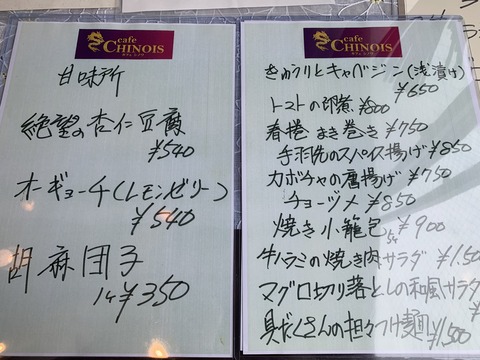 cafe
CHINOIS
甘味所
絶望の杏仁豆腐
¥540
オーギョーチ(レモンゼリー)
¥540
胡麻団子
1ケ¥350
cafe
CHINOIS
きゅうりとキャベジン(浅漬け)
¥650
トマトの即煮¥800
春捲 まき巻き ¥750
手羽先のスパイス揚げ ¥850
カボチャの唐揚げ ¥750
チョーヅメ ¥850
焼き小籠包 5ケ ¥900
牛ハラミの焼き肉サラダ ¥1.50
マグロ切り落としの和風サラダ
具だくさんの担々つけ麺 ¥1,500